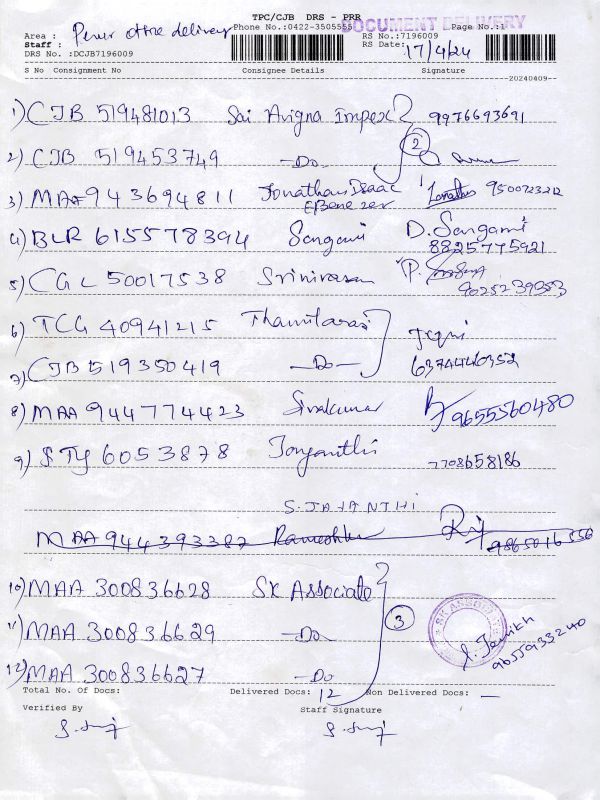 TPC/CJB DRS - PRR
DOCUMENT DELIVERY
Phone No.:0422-3505555 Page No.:1
Area : Perur office delivery
RS No.:7196009
Staff :
RS Date: 17/4/24
DRS No. :DCJB7196009
S No Consignment No Consignee Details Signature
20240409--
1) CJB 519481013 Sai Avigna Impex 9976693691
2) CJB 519453749 -Do- 2
3) MAA 943694811 Jonathan Isaac Ebenezer Jonathan 9500723212
4) BLR 615578394 Sangami D. Sangami
8825775921
5) CGL 50017538 Srinivasan P.
9025239353
6) TCG 40941215 Thamilarasi
7) CJB 519350419 -Do- 6374440352
8) MAA 944774423 Sivakumar 9655560480
9) STY 6053878 Jayanthi 7708658186
S. JAYANTHI
MAA 944393387 Ramesh 9865016556
10) MAA 300836628 SK Associate
11) MAA 300836629 -Do- 3 SK ASSOCIATE
12) MAA 300836627 -Do 9655933240
Total No. Of Docs: Delivered Docs: 12 Non Delivered Docs: —
Verified By Staff Signature